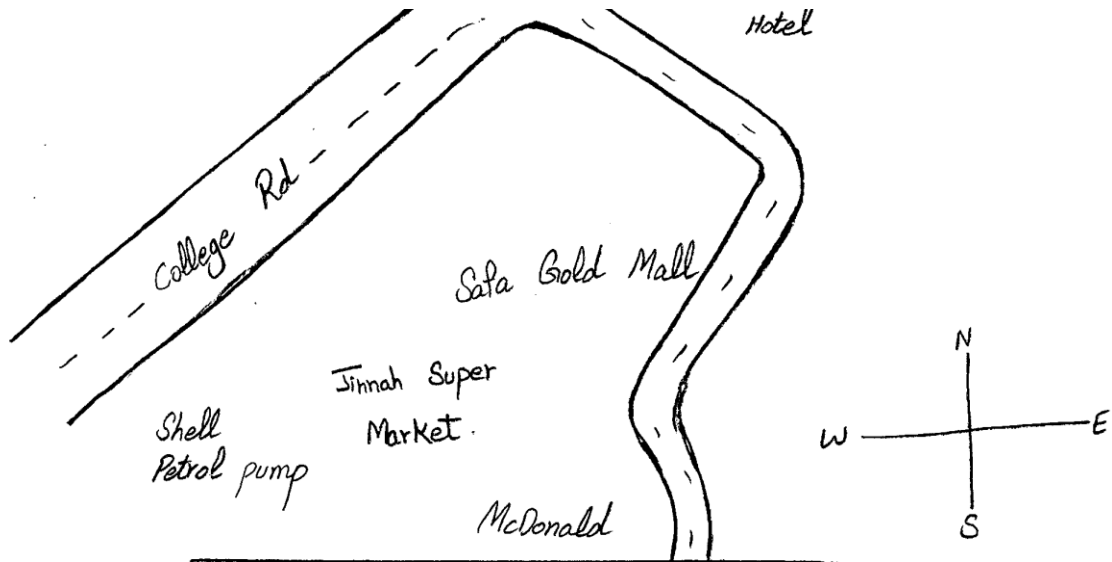 Hotel
College Rd
Safa Gold Mall
Jinnah Super
Market.
Shell
Petrol pump
McDonald
N
W E
S